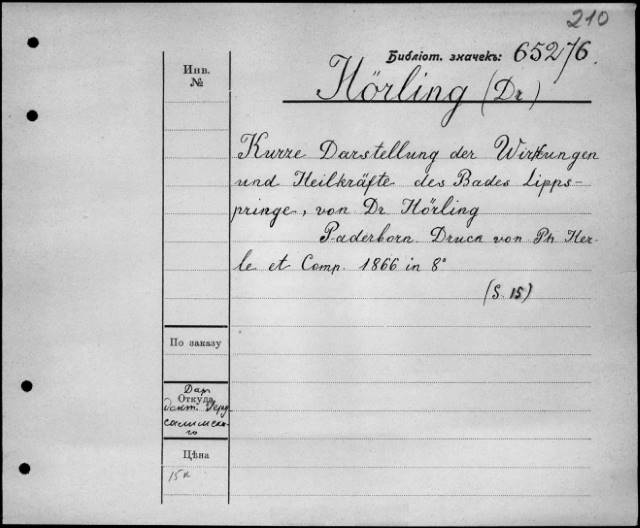 210
Библіот. значекъ: 65276.
Инв.
№
Hörling (Dr)
Kurze Darstellung der Wirkungen
und Heilkräfte des Bades Lipps-
pringe, von Dr. Hörling
Paderborn. Druck von Ph. Her-
le et Comp. 1866 in 8°
(S. 15)
По заказу
Даръ
Откуда
докт. Іеру-
салимска-
го
Цѣна
15к